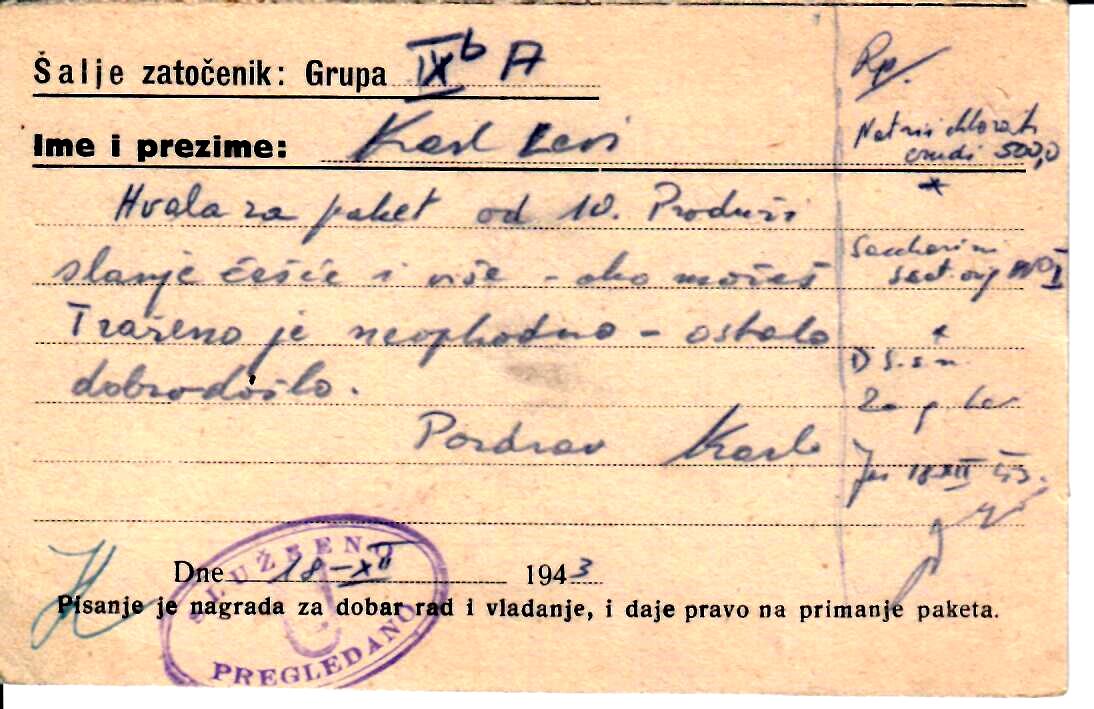 Šalje zatočenik: Grupa IXb A
Ime i prezime: Karl Levi
Hvala za paket od 10. Produži
slanje češće i više - ako možeš
Traženo je neophodno - ostalo
dobrodošlo.
Pozdrav Karlo
Rp.
Natrii chlorati
crudi 500,0
Saccharini
D S. s. n.
18 XII 43.
Dne 18-XII 1943
Pisanje je nagrada za dobar rad i vladanje, i daje pravo na primanje paketa.
SLUŽBENO
U
PREGLEDANO